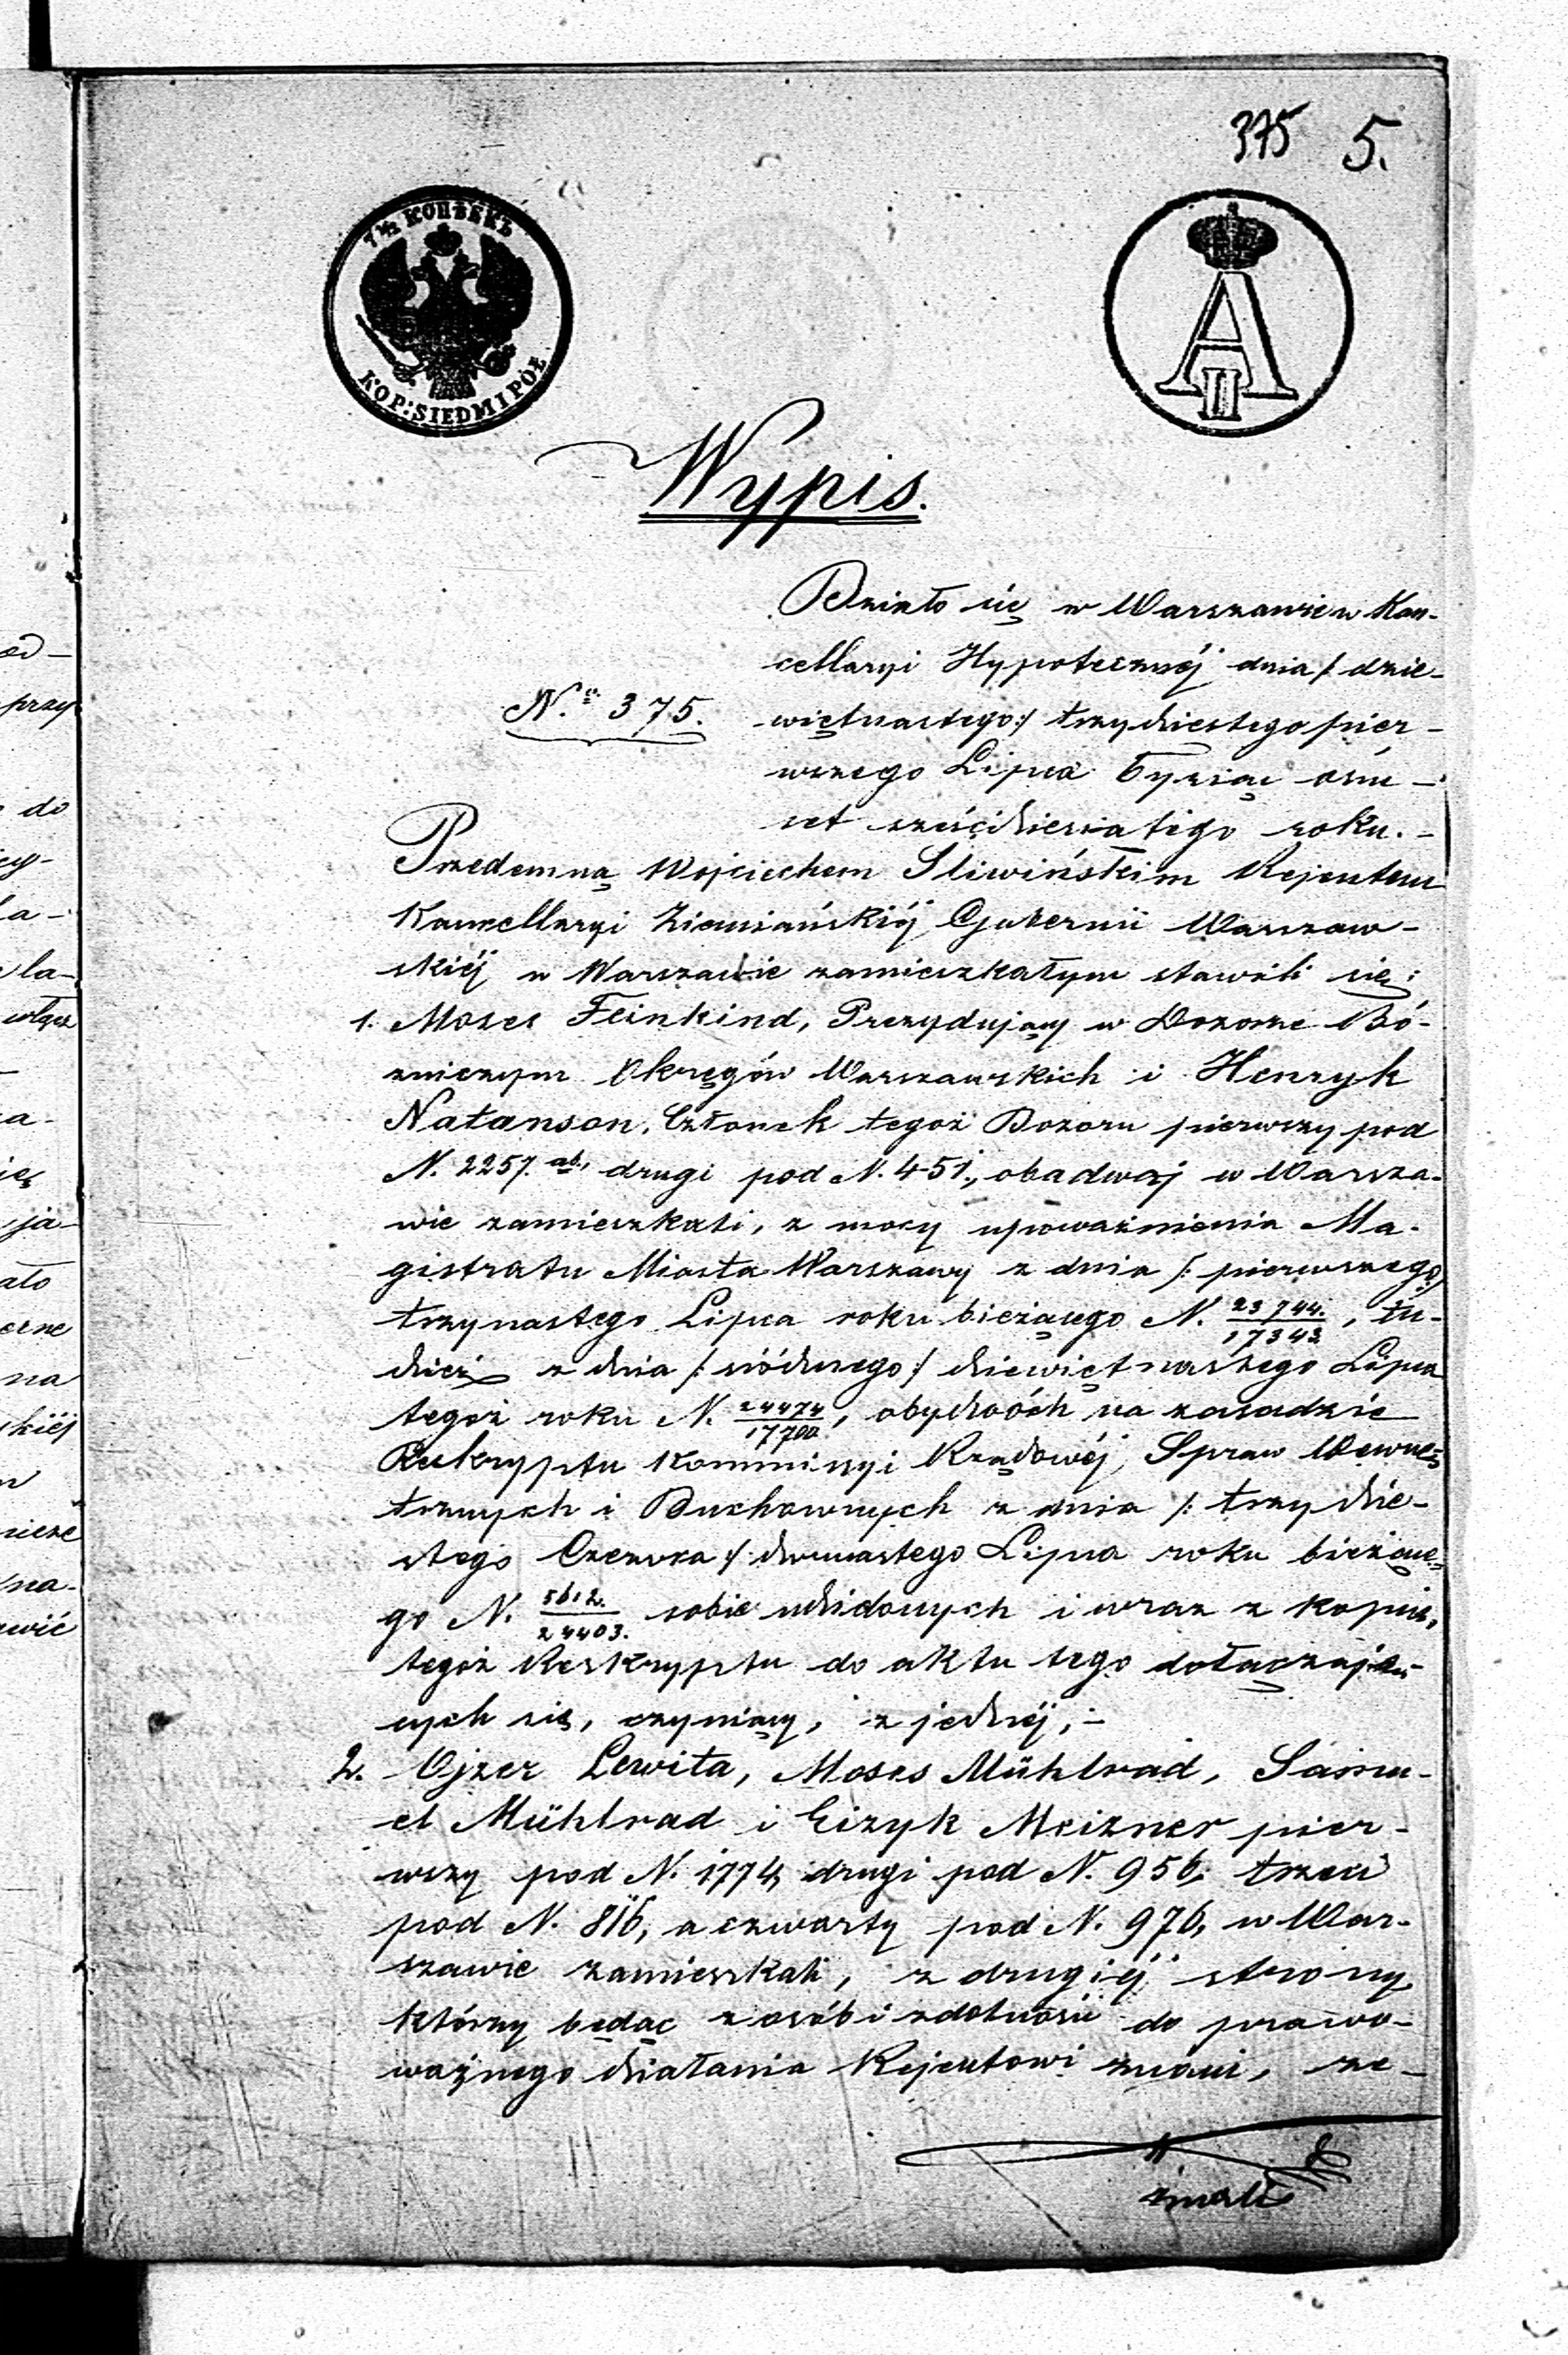 375 5.
7 1/2 КОПѢЕКЪ
KOP: SIEDM I PÓŁ
A II
Wypis.
Działo się w Warszawie w Kan-
cellaryi Hypotecznéj dnia /: dzie-
N.º 375. więtnastego :/ trzydziestego pier-
wszego Lipca Tysiąc ośm -
set sześćdziesiątego roku. -
Przedemną Wojciechem Sliwińskim Rejentem
Kancellaryi Ziemiańskiéj Gubernii Warszaw-
skiéj w Warszawie zamieszkałym stawili się:
1. Moses Feinkind, Prezydujący w Dozorze Bó-
żniczym Okręgów Warszawskich i Henryk
Natanson, Członek tegoż Dozoru pierwszy pod
N. 2257. ab, drugi pod N. 451., obadwaj w Warsza-
wie zamieszkali, z mocy upoważnienia Ma-
gistratu Miasta Warszawy z dnia /: pierwszego :/
trzynastego Lipca roku bieżącego N. 23744./17343, tu-
dzież z dnia /: siódmego :/ dziewiętnastego Lipca
tegoż roku N. 24474/17700, obydwóch na zasadzie
Reskryptu Kommissyi Rządowéj Spraw Wewnę-
trznych i Duchownych z dnia /: trzydzie-
stego Czerwca :/ dwunastego Lipca roku bieżące-
go N. 5612./24403. sobie udzielonych i wraz z kopią
tegoż Reskryptu do aktu tego dołączają-
cych się, czyniący, z jednéj, -
2. Ojzer Lewita, Moses Mühlrad, Samu-
el Mühlrad i Eizyk Meizner pier-
wszy pod N. 1774, drugi pod N. 956, trzeci
pod N. 816, a czwarty pod N. 976, w War-
szawie zamieszkali, z drugiéj strony
którzy będąc z osób i zdolności do prawo-
ważnego działania Rejentowi znani, ze-
znali
od-
przy
do
la-
na